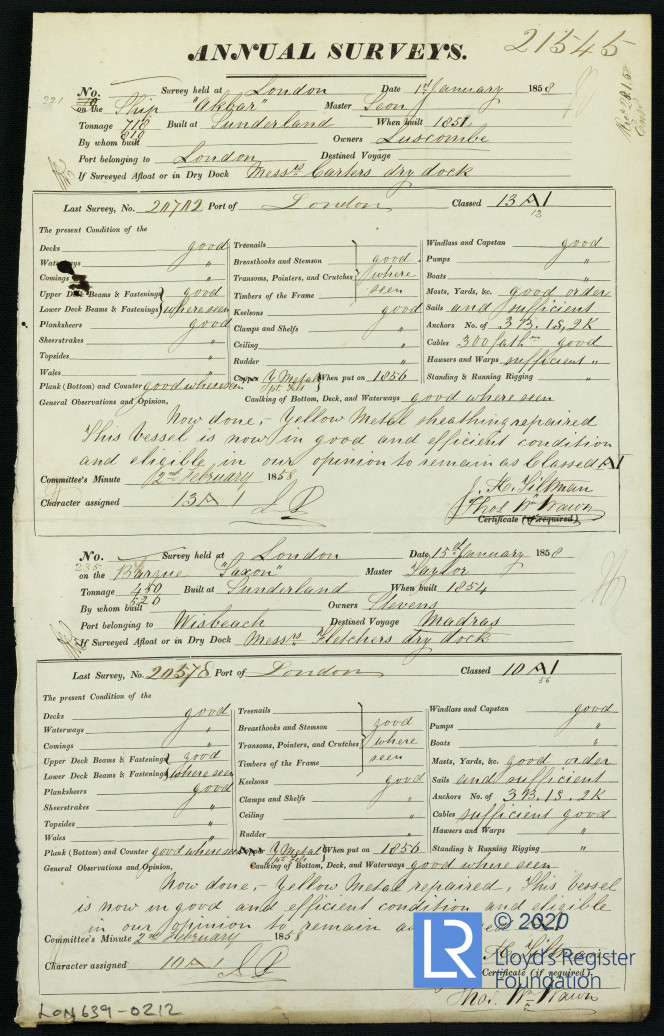 ANNUAL SURVEYS.
21545
No. Survey held at London Date 1st January 1858
on the Ship "Akbar" Master
Tonnage 718 810 Built at Sunderland When built 1851
By whom built Owners Luscombe
Port belonging to London Destined Voyage
If Surveyed Afloat or in Dry Dock Messrs Carters dry dock
Last Survey, No. 20702 Port of London Classed 13 A1
13
The present Condition of the
Decks good
Waterways "
Comings "
Upper Deck Beams & Fastenings good
Lower Deck Beams & Fastenings where seen
Planksheers good
Sheerstrakes "
Topsides "
Wales "
Plank (Bottom) and Counter good where seen
Treenails
Breasthooks and Stemson good
Transoms, Pointers, and Crutches where
Timbers of the Frame seen
Keelsons good
Clamps and Shelfs "
Ceiling "
Rudder "
Copper Y Metal When put on 1856
Caulking of Bottom, Deck, and Waterways good where seen
Windlass and Capstan good
Pumps "
Boats "
Masts, Yards, &c. good order
Sails and sufficient
Anchors No. of 3B. 1S. 2K
Cables 300 fathm good
Hawsers and Warps sufficient "
Standing & Running Rigging "
General Observations and Opinion,
Now done, - Yellow Metal sheathing repaired
This vessel is now in good and efficient condition
and eligible in our opinion to remain as Classed A1
Committee's Minute 2nd February 1858
Character assigned 13 A 1
Thos. Wm Wawn
Certificate (if required)
No. 235 Survey held at London Date, 15th January 1858
on the Barque "Saxon" Master Taylor
Tonnage 450 520 Built at Sunderland When built 1854
By whom built Owners Stevens
Port belonging to Wisbeach Destined Voyage Madras
If Surveyed Afloat or in Dry Dock Messrs Fletchers dry dock
Last Survey, No. 20578 Port of London Classed 10 A1
56
The present Condition of the
Decks good
Waterways "
Comings "
Upper Deck Beams & Fastenings good
Lower Deck Beams & Fastenings where seen
Planksheers good
Sheerstrakes "
Topsides "
Wales "
Plank (Bottom) and Counter good where seen
Treenails
Breasthooks and Stemson good
Transoms, Pointers, and Crutches where
Timbers of the Frame seen
Keelsons good
Clamps and Shelfs "
Ceiling "
Rudder "
Y Metal When put on 1856
Caulking of Bottom, Deck, and Waterways good where seen
Windlass and Capstan good
Pumps "
Boats "
Masts, Yards, &c. good order
Sails and sufficient
Anchors No. of 3B. 1S. 2K
Cables sufficient good
Hawsers and Warps "
Standing & Running Rigging "
General Observations and Opinion,
Now done, - Yellow Metal repaired, This vessel
is now in good and efficient condition and eligible
in our opinion to remain as
Committee's Minute 2nd February 1858
Character assigned 10 A 1
Certificate (if required)
Thos. Wm Wawn
LON639-0212
LR
© 2020
Lloyd's Register
Foundation